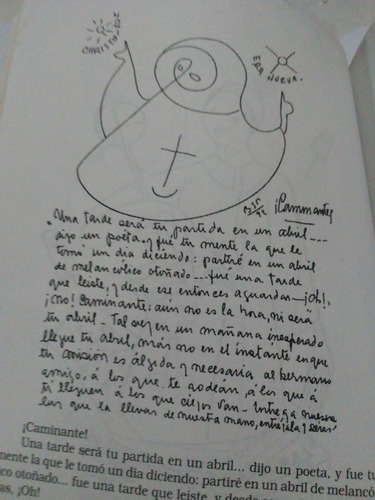 CHRISTO-LUZ
ERA NUEVA.
¡Caminante!
Una tarde será tu partida en un abril....
dijo un poeta, y fué tu mente la que le
tomó un día diciendo: partiré en un abril
de melancólico otoñado... fué una tarde
que leiste, y desde ese entonces aguardas ¡Oh!.
¡no! Caminante: aún no es la hora, ni será
tu abril. Tal vez en un mañana inesperado
llegue tu abril, más no en el instante en que
tu misión es álgida y necesaria al hermano
amigo, á los que te rodean, á los que á
ti lleguen á los que ciegos van. Entrega nuestra
luz que la llevas de nuestra mano, entrégala y serás
¡Caminante!
Una tarde será tu partida en un abril... dijo un poeta, y fue tu
mente la que lo tomó un día diciendo: partiré en un abril de melancó
ico otoñado... fue una tarde que leiste, y desde
as, ¡Oh!